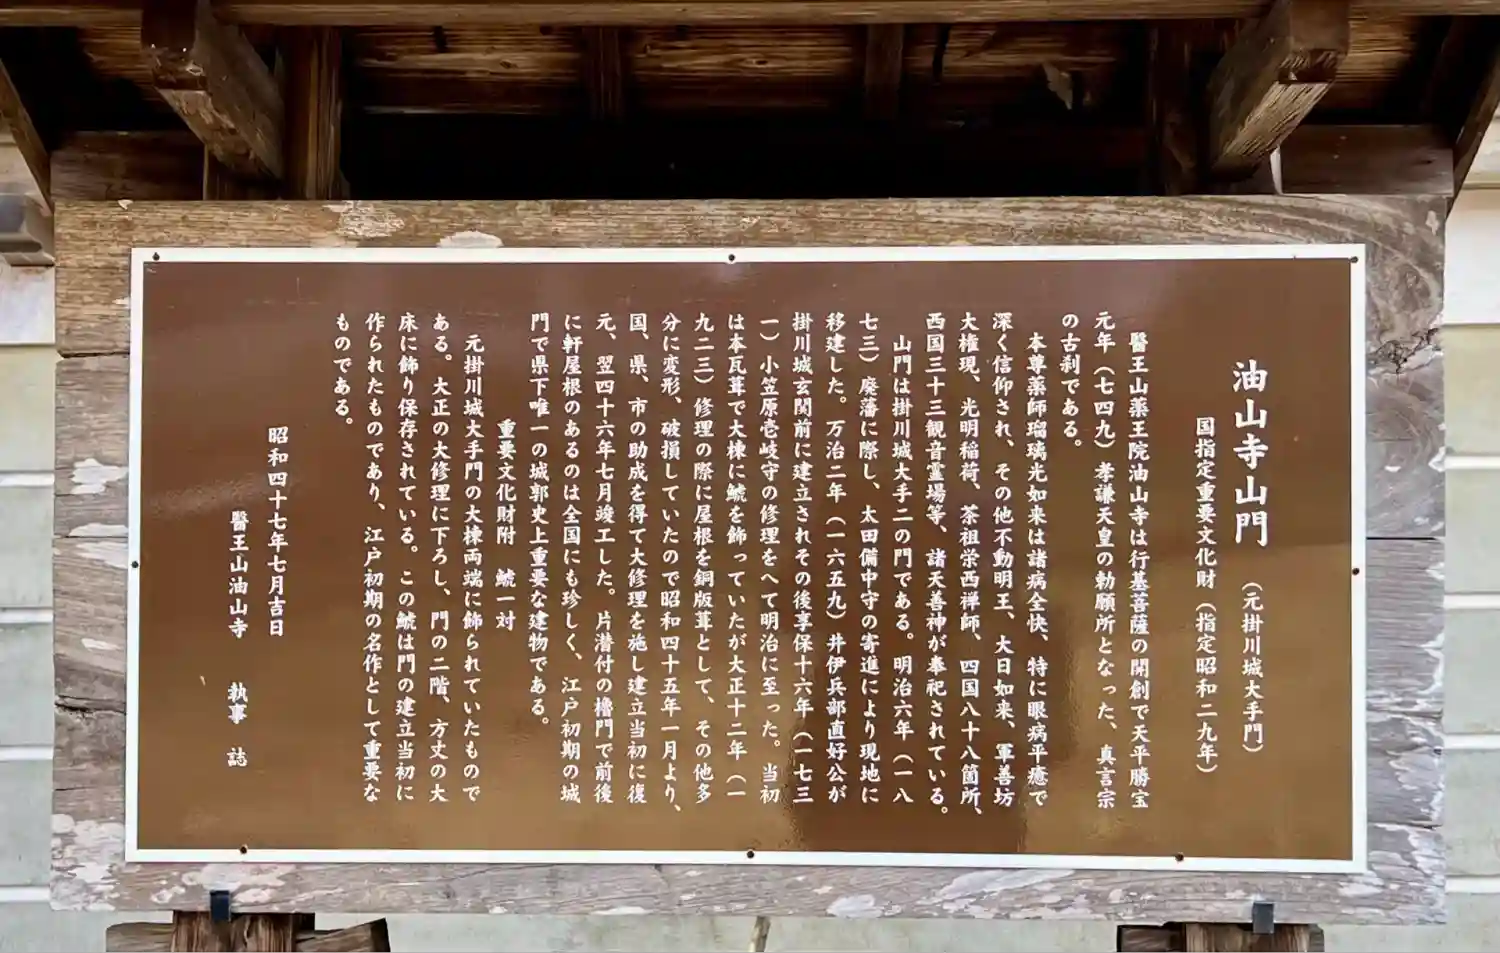 油山寺山門 （元掛川城大手門）
国指定重要文化財（指定昭和二九年）
醫王山薬王院油山寺は行基菩薩の開創で天平勝宝
元年（七四九）孝謙天皇の勅願所となった、真言宗
の古刹である。
本尊薬師瑠璃光如来は諸病全快、特に眼病平癒で
深く信仰され、その他不動明王、大日如来、軍善坊
大権現、光明稲荷、茶祖栄西禅師、四国八十八箇所、
西国三十三観音霊場等、諸天善神が奉祀されている。
山門は掛川城大手二の門である。明治六年（一八
七三）廃藩に際し、太田備中守の寄進により現地に
移建した。万治二年（一六五九）井伊兵部直好公が
掛川城玄関前に建立されその後享保十六年（一七三
一）小笠原壱岐守の修理をへて明治に至った。当初
は本瓦葺で大棟に鯱を飾っていたが大正十二年（一
九二三）修理の際に屋根を銅版葺として、その他多
分に変形、破損していたので昭和四十五年一月より、
国、県、市の助成を得て大修理を施し建立当初に復
元、翌四十六年七月竣工した。片潜付の櫓門で前後
に軒屋根のあるのは全国にも珍しく、江戸初期の城
門で県下唯一の城郭史上重要な建物である。
重要文化財附 鯱一対
元掛川城大手門の大棟両端に飾られていたもので
ある。大正の大修理に下ろし、門の二階、方丈の大
床に飾り保存されている。この鯱は門の建立当初に
作られたものであり、江戸初期の名作として重要な
ものである。
昭和四十七年七月吉日
醫王山油山寺 執事 誌